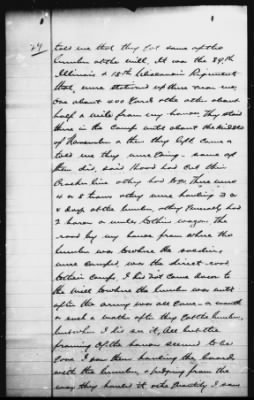 24
told me that they got some of the
lumber at the mill. It was the 89th
Illinois & 15th Wisconsin Regiments
that were stationed up there near me,
one about 200 yards & the other about
half a mile from my house. They staid
there in the Camp until about the middle
of November & then they left. Came &
told me they were going. some of
them did, said Hood had cut their
Cracker line & they had to go. There were
4 or 5 teams & they were hauling 3 or
4 days at the lumber, they generally had
2 horses or mules to their wagon. The
road by my house from where the
lumber was to where the soldiers
were camped, was the direct road
to their camp. I did not come down to
the mill to where the lumber was until
after the army was all gone - a month
or such a matter after they got the lumber,
but when I did see it, all but the
framing of the house seemed to be
gone. I saw them hauling the boards
with the lumber, & judging from the
way they hauled it & the quantity I saw